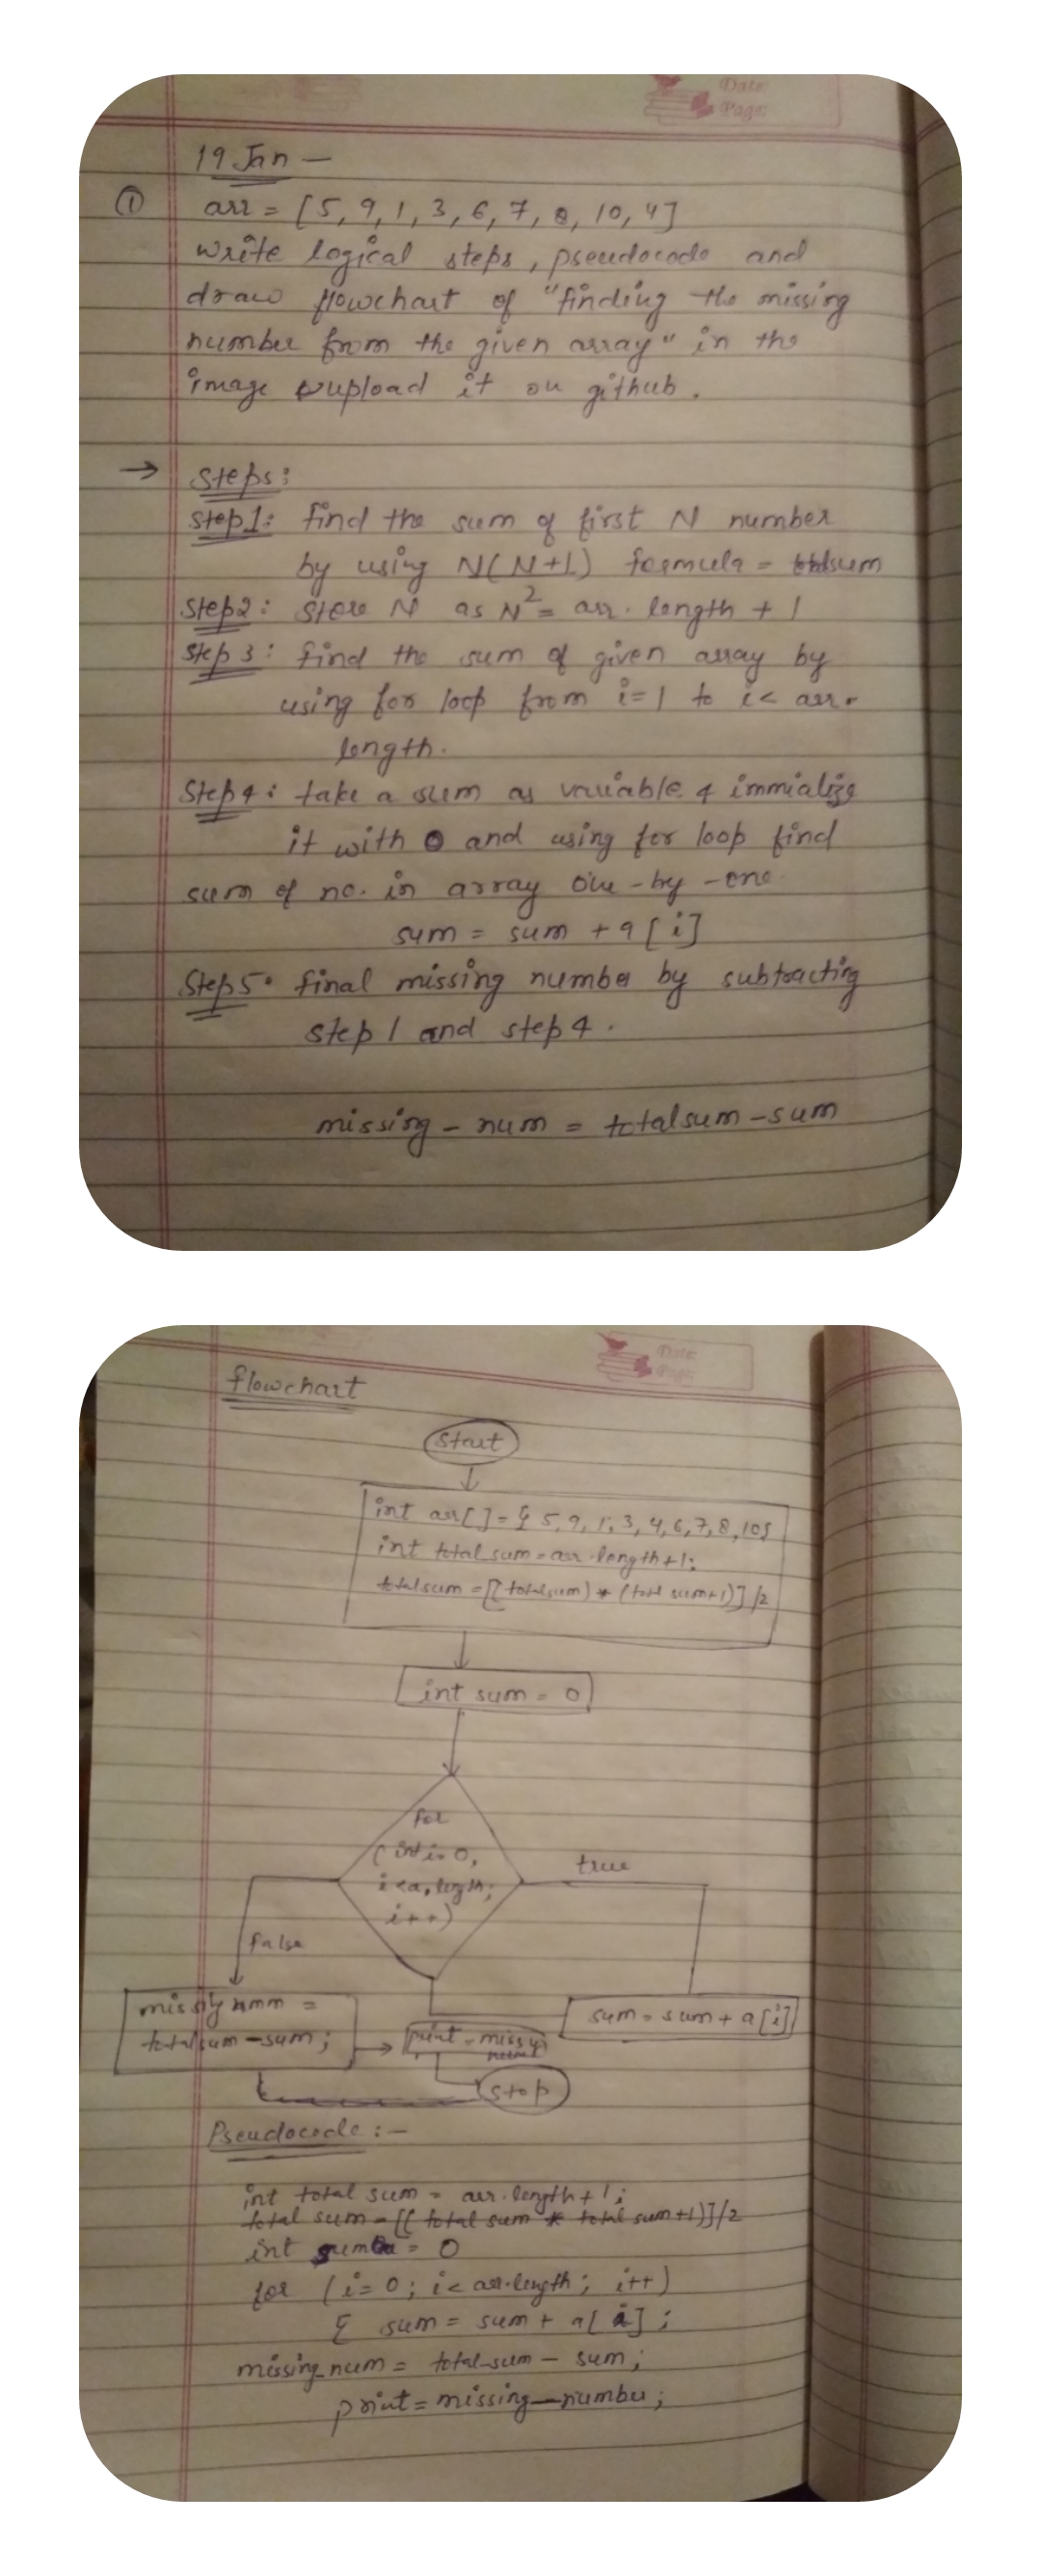 Date:
Page:
19 Jan —
① arr = [5, 9, 1, 3, 6, 7, 8, 10, 4]
write logical steps, pseudocode and
draw flowchart of "finding the missing
number from the given array" in the
image upload it on github.
→ Steps:
Step1: find the sum of first N number
by using N(N+1) formula = totalsum
2
Step2: store N as N = arr. length + 1
Step 3: find the sum of given array by
using for loop from i=1 to i< arr.
length.
Step4: take a sum as variable & immialize
it with 0 and using for loop find
sum of no. in array one-by-one
sum = sum + a[i]
Step5: final missing number by subtracting
step 1 and step 4.
missing-num = totalsum-sum
Date:
Page:
flowchart
start
int arr[]={ 5, 9, 1, 3, 4, 6, 7, 8, 10}
int total sum = arr.length+1;
totalsum =[(totalsum) * (total sum+1)]/2
int sum = 0
for
(int i=0,
i<a.length;
i++)
true
false
missing num =
totalsum-sum;
sum = sum + a[i]
print = missing
num
stop
Pseudocode:-
int total sum = arr.length+1;
total sum=[( total sum * total sum+1)]/2
int sum = 0
for (i=0; i< arr.length; i++)
{ sum = sum + a[i];
missing_num = total-sum - sum;
print=missing—number;